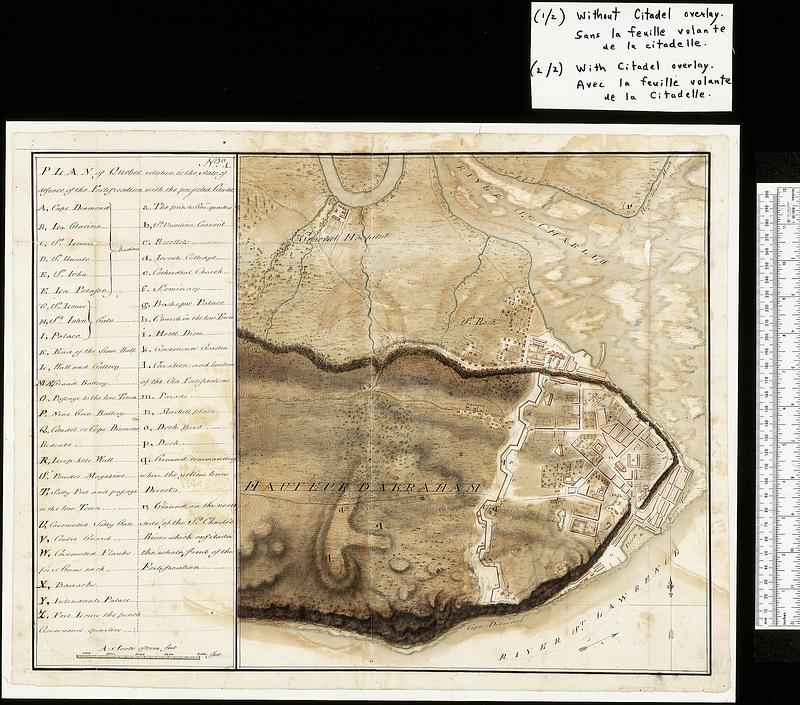 (1/2) Without Citadel overlay.
Sans la feuille volante
de la citadelle.
(2/2) With Citadel overlay.
Avec la feuille volante
de la Citadelle.
PLAN, of Quebec, relative to the state of
defence of the Fortification with the projected
A, Cape Diamond
B, La Glaciere
C, St. Louis
D, St. Ursula
E, St. John
F, La Potasse
G, St. Louis
H, St. John Gate
I, Palace
K, End of the Stone Wall
L, Wall and Gallery
M, Grand Battery
O, Passage to the low Town
P, Nine Gun Battery
Q, Cavalier or Cape Diamond
Redoubt
R, Loop-hole Wall
S, Powder Magazine
T, Sally Port and passage
to the low Town
U, Casemated Sally Gate
V, Center Guard
W, Casemated Flanks
for 2 Guns each
X, Barracks
Y, Intendants Palace
Z, Fort Louis the french
Governors quarter
a, The present Govr. quarters
b, Ursuline Convent
c, Recollets
d, Jesuits Colledge
e, Cathedral Church
f, Seminary
g, Bishops Palace
h, Church in the low Town
i, Hotel Dieu
k, Governours Garden
l, Cavalier and bastions
of the Old Fortifications
m, Parade
n, Market place
o, Dock Yard
p, Dock
q, Ground commanding
where the yellow lines
Directs
r, Ground on the north
side of the St. Charles
River which enfilades
the whole front of the
Fortification
A Scale of feet
General Hospital
RIVER St. CHARLES
St. Roch
HAUTEUR D'ABRAHAM
Cape Diamond
RIVER St. LAWRENCE